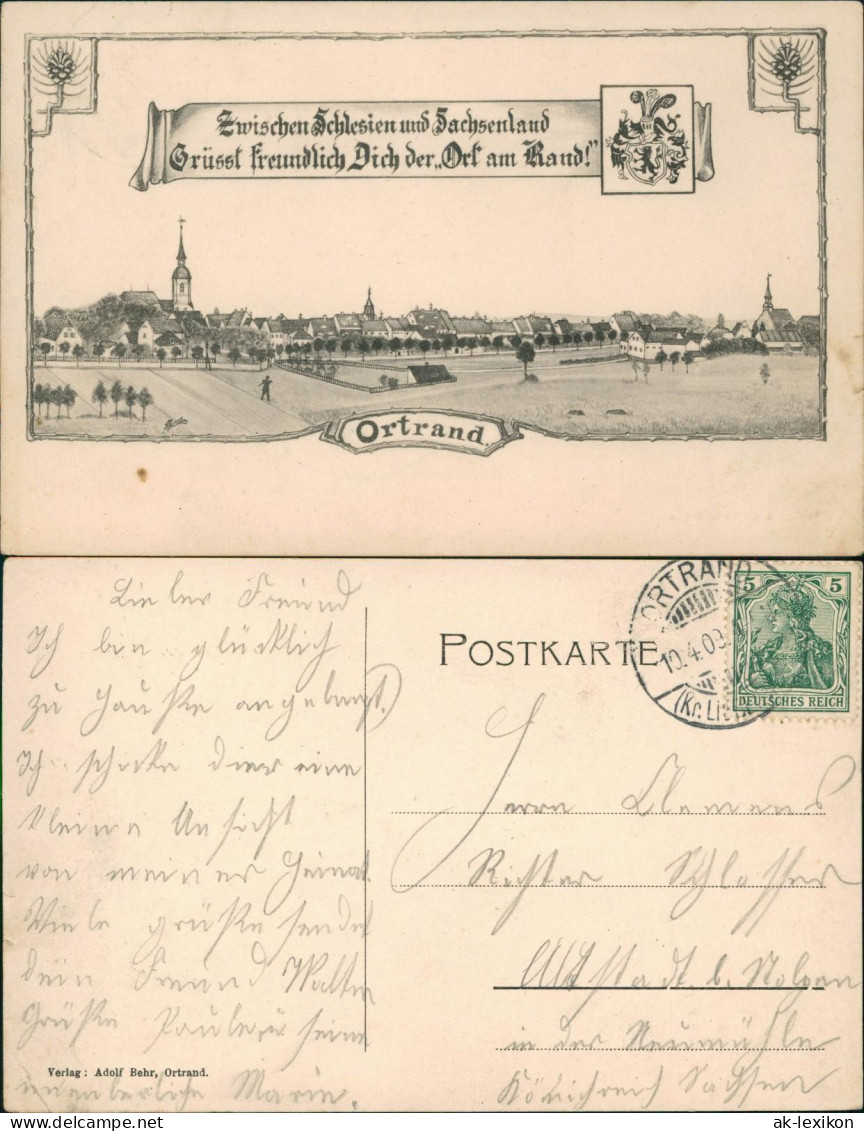 Zwischen Schlesien und Sachsenland
Grüsst freundlich Dich der „Ort am Rand!"
Ortrand.
Lieber Freund
Ich bin glücklich
zu Hauße angelangt.
Ich schicke dier eine
kleine Ansicht
von meiner Heimat.
Viele grüße sendet
dein Freund Walter
Grüße Paul u seine
Marie.
Verlag: Adolf Behr, Ortrand.
POSTKARTE
ORTRAND
10.4.09
(Kr. Li
5 5
DEUTSCHES REICH
Herrn Clemens
Richter Schlosser
Altstadt b. Stolpen
in der Neumühle
Königreich Sachsen
ak-lexikon